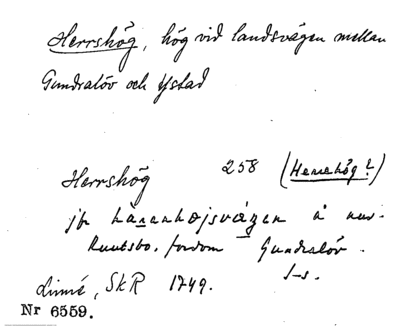 Herrshög, hög vid landsvägen mellan
Gundralöv och Ystad
Herrshög 258 (Herrehög?)
jfr härenhøjsvägen å nuv.
Knutsbo, fordom Gundralöv.
S-s.
Linné, SkR 1749.
Nr 6559.